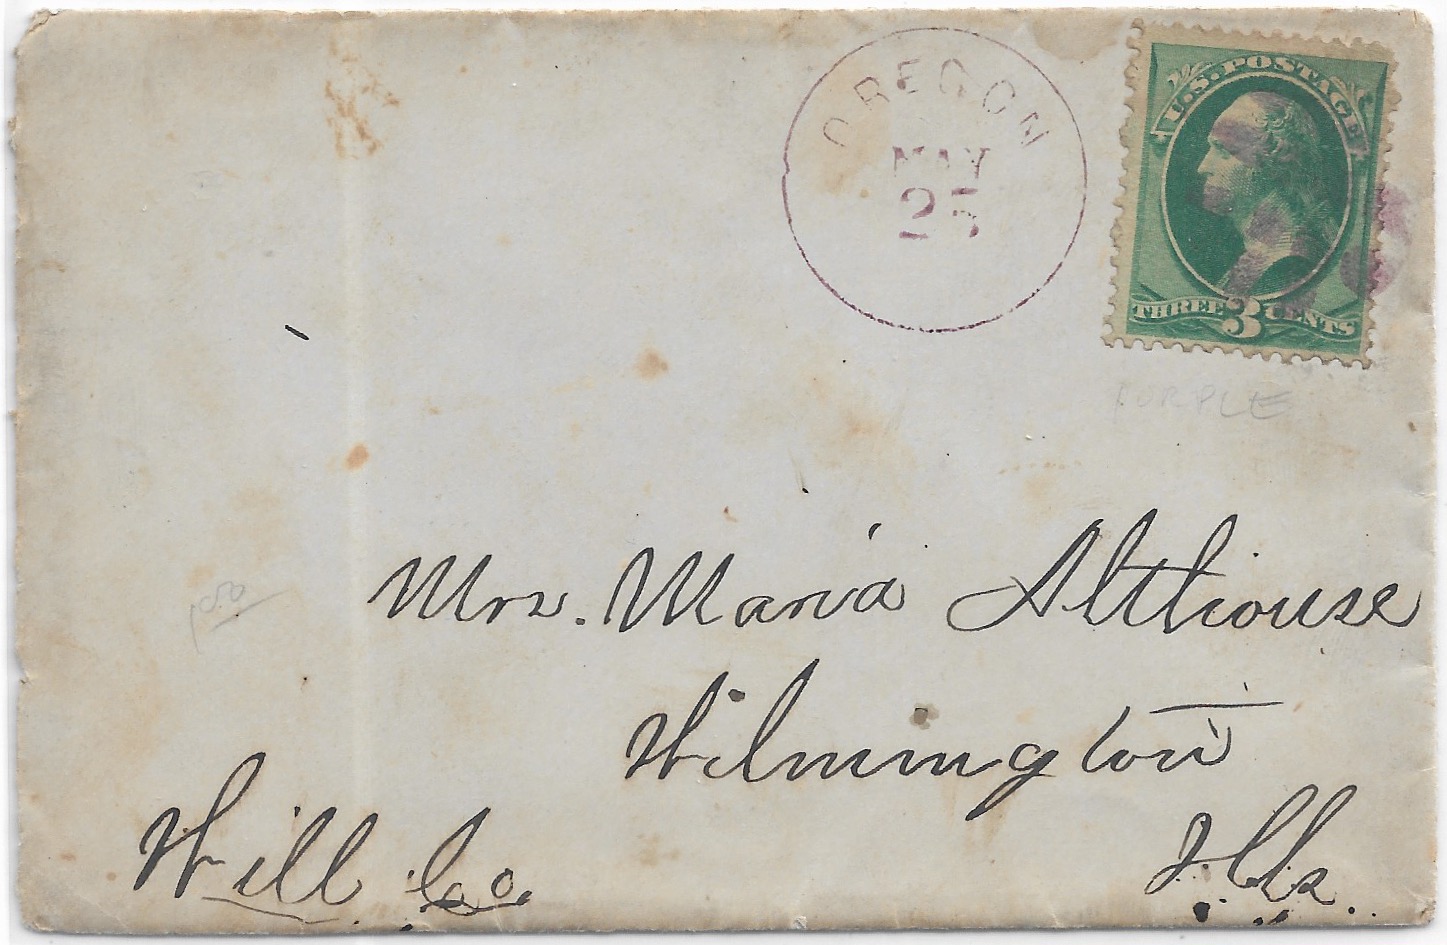 OREGON
MAY
25
U.S. POSTAGE
THREE 3 CENTS
PURPLE
Mrs. Maria Althouse
Wilmington
Will Co.
Ills.